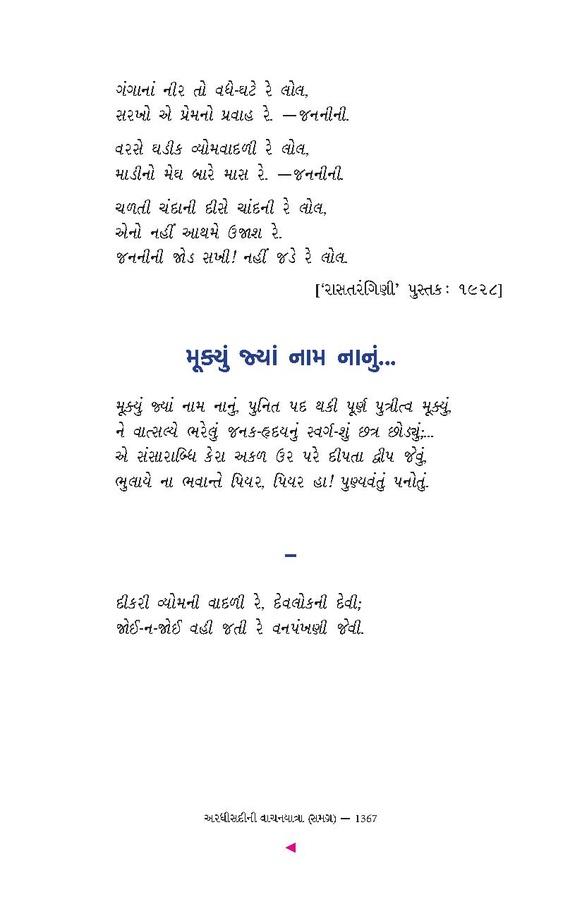 ગંગાનાં નીર તો વધે-ઘટે રે લોલ,
સરખો એ પ્રેમનો પ્રવાહ રે. —જનનીની.
વરસે ઘડીક વ્યોમવાદળી રે લોલ,
માડીનો મેઘ બારે માસ રે. —જનનીની.
ચળતી ચંદાની દીસે ચાંદની રે લોલ,
એનો નહીં આથમે ઉજાશ રે.
જનનીની જોડ સખી! નહીં જડે રે લોલ.
['રાસતરંગિણી' પુસ્તક: ૧૯૨૮]
મૂક્યું જ્યાં નામ નાનું...
મૂક્યું જ્યાં નામ નાનું, પુનિત પદ થકી પૂર્ણ પુત્રીત્વ મૂક્યું,
ને વાત્સલ્યે ભરેલું જનક-હૃદયનું સ્વર્ગ-શું છત્ર છોડ્યું;...
એ સંસારાબ્ધિ કેરા અકળ ઉર પરે દીપતા દ્વીપ જેવું,
ભુલાયે ના ભવાન્તે પિયર, પિયર હા! પુણ્યવંતું પનોતું.
–
દીકરી વ્યોમની વાદળી રે, દેવલોકની દેવી;
જોઈ-ન-જોઈ વહી જતી રે વનપંખણી જેવી.
અરધીસદીની વાચનયાત્રા (સમગ્ર) — 1367